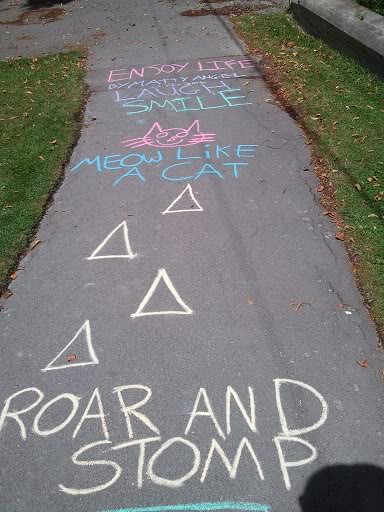 ENJOY LIFE
BY MATTY ANGEL
LAUGH
SMILE
MEOW LIKE
A CAT
ROAR AND
STOMP